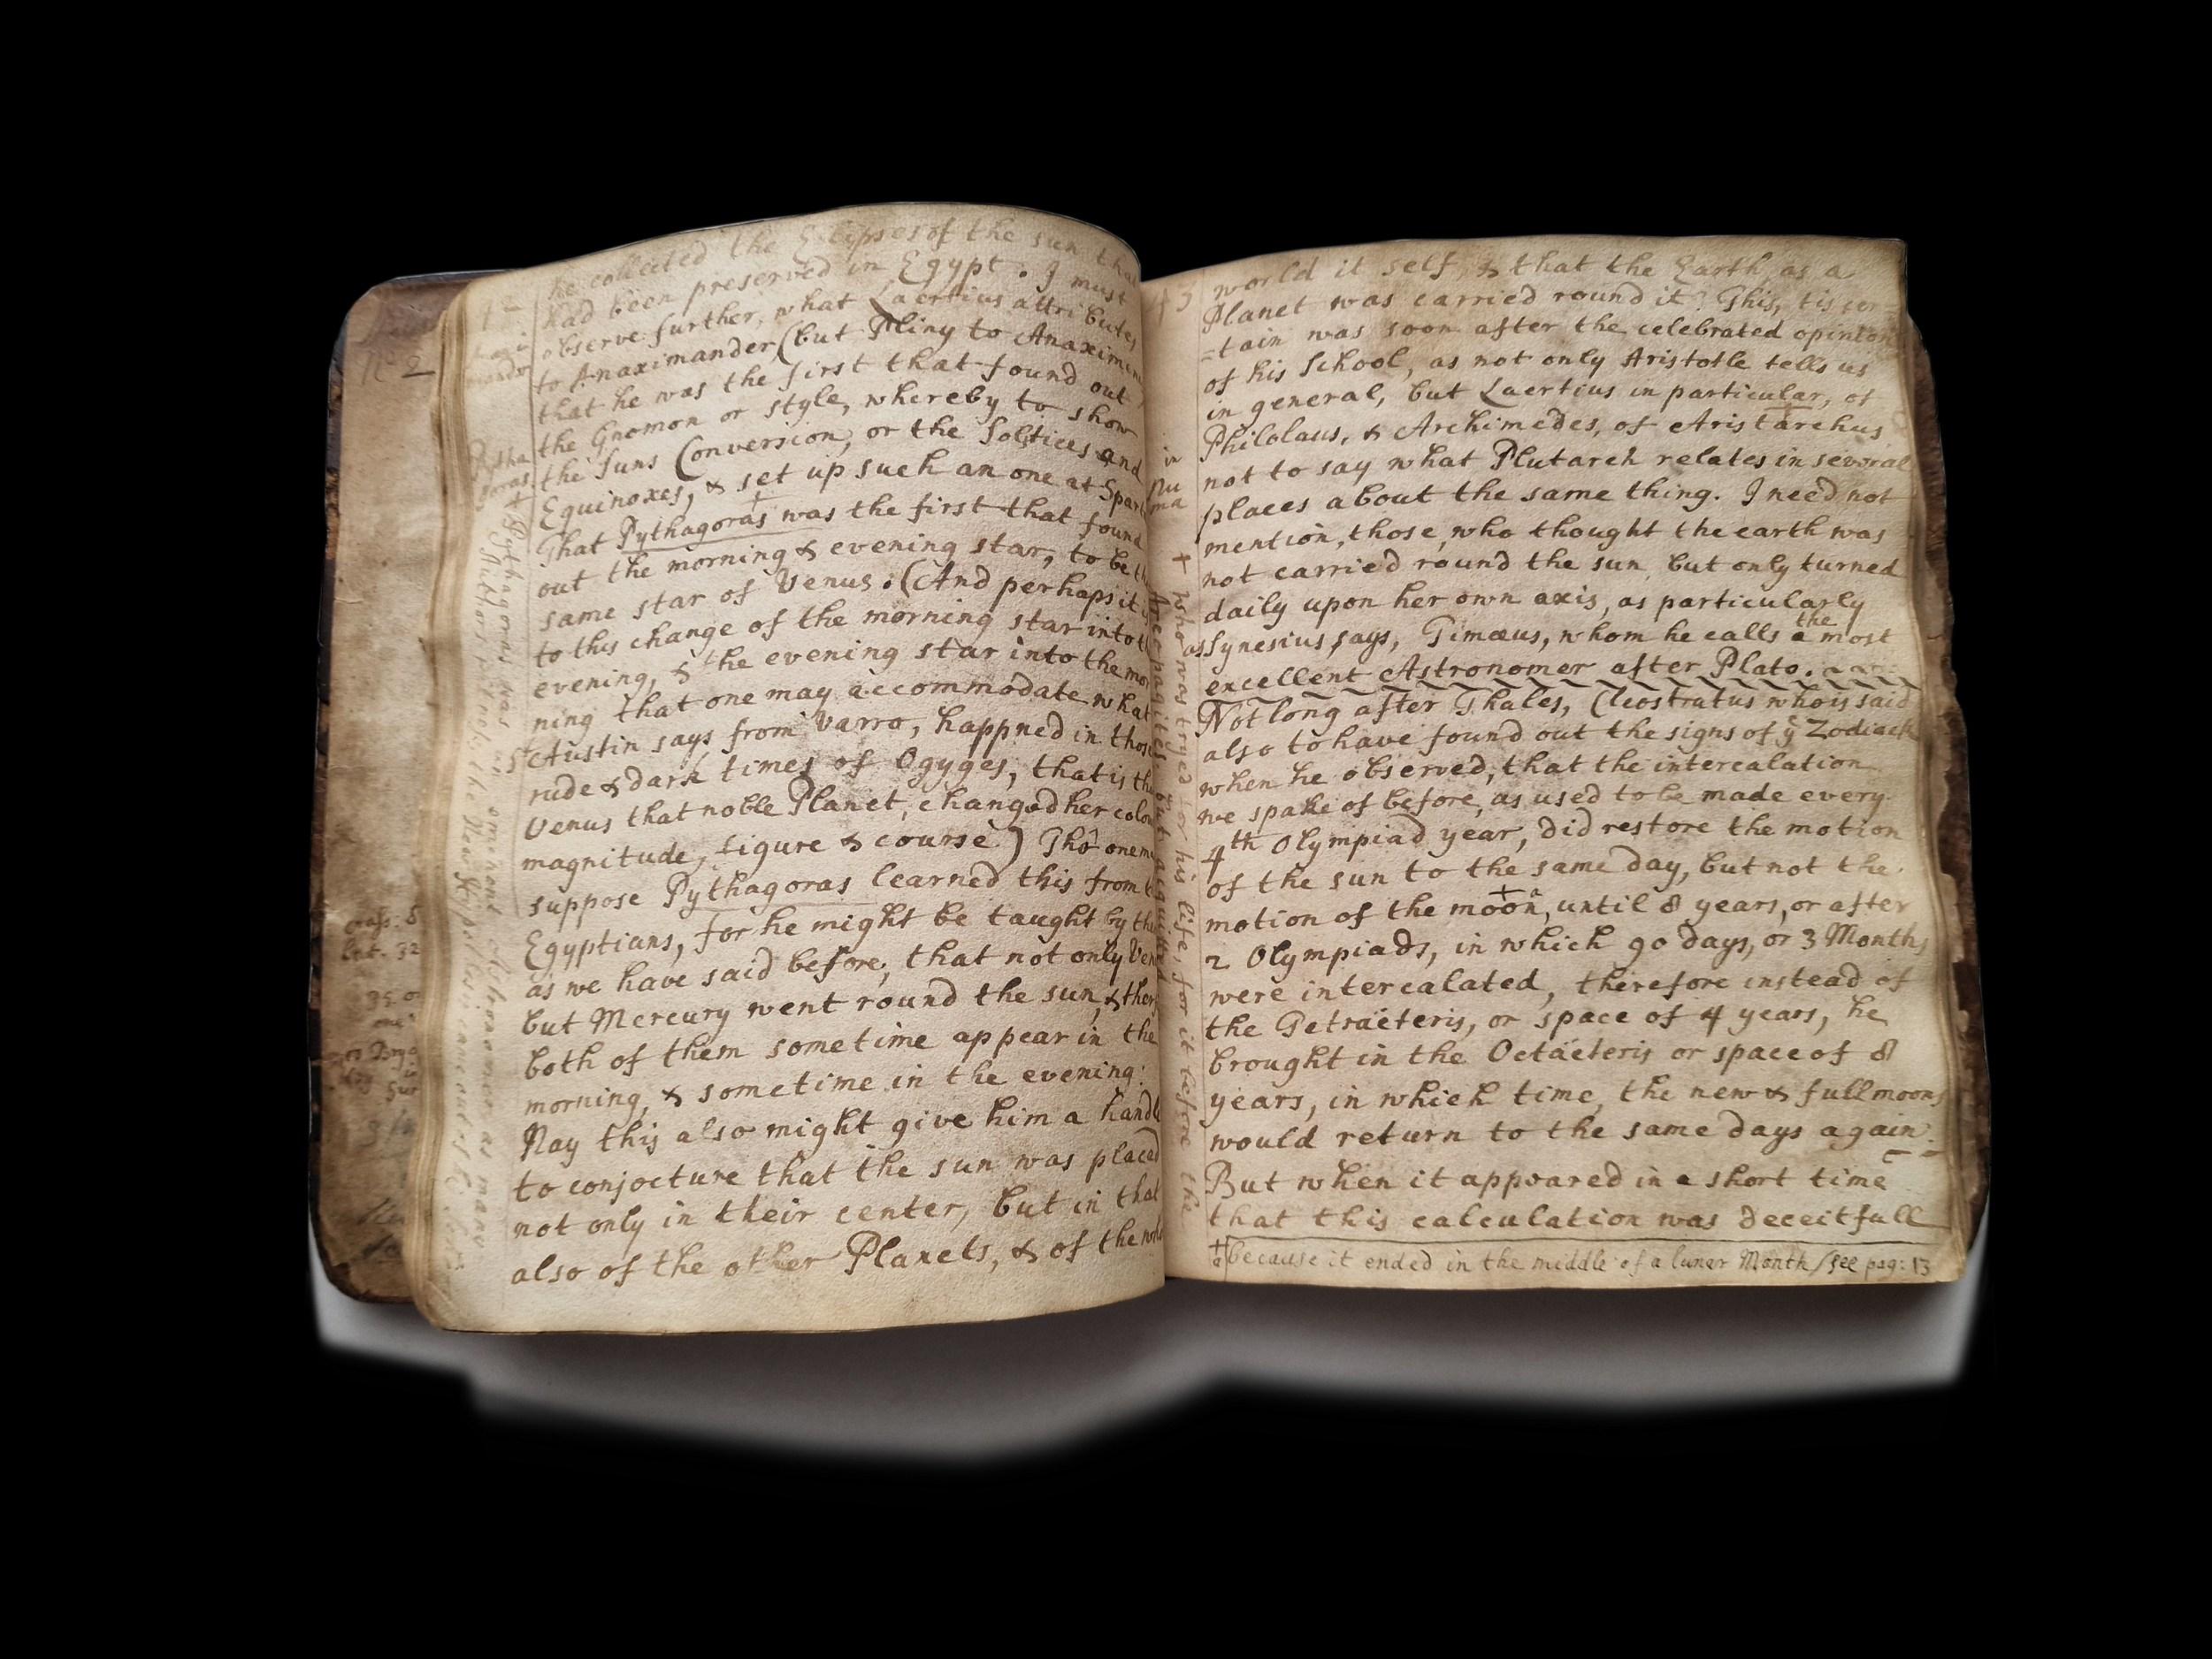 he collected the Eclipses of the sun that
had been preserved in Egypt. I must
observe further, what Laertius attributes
to Anaximander (but Pliny to Anaximenes
that he was the first that found out
the Gnomon or style, whereby to show
the suns Conversion, or the Solstices and
Equinoxes, & set up such an one at Spar
That Pythagoras was the first that found
out the morning & evening star, to be th
same star of Venus. (And perhaps it is
to this change of the morning star into th
evening, & the evening star into the mor
ning that one may accommodate what
St Austin says from Varro, happned in those
rude & dark times of Ogyges, that is tha
Venus that noble Planet, changed her colou
magnitude, figure & course) Tho one m
suppose Pythagoras learned this from t
Egyptians, for he might be taught by the
as we have said before, that not only Ven
but Mercury went round the sun, & ther
both of them sometime appear in the
morning, & sometime in the evening:
Nay this also might give him a handle
to conjecture that the sun was placed
not only in their center, but in that
also of the other Planets, & of the world
Pytha
goras
No 2
43
world it self, & that the Earth, as a
Planet was carried round it? This, tis cer
=tain was soon after the celebrated opinion
of his School, as not only Aristotle tells us
in general, but Laertius in particular, of
Philolaus, & Archimedes, of Aristarchus
not to say what Plutarch relates in several
places about the same thing. I need not
mention, those, who thought the earth was
not carried round the sun, but only turned
daily upon her own axis, as particularly
as Synesius says, Timæus, whom he calls a the most
excellent Astronomer after Plato.
Not long after Thales, Cleostratus who is said
also to have found out the signs of ye Zodiack
when he observed, that the intercalation
we spake of before, as used to be made every
4th Olympiad year, did restore the motion
of the sun to the same day, but not the
motion of the moon, until 8 years, or after
2 Olympiads, in which 90 days, or 3 Months
were intercalated, therefore instead of
the Tetraëteris, or space of 4 years, he
brought in the Octaëteris or space of 8
years, in which time, the new & full moons
would return to the same days again:
But when it appeared in a short time
that this calculation was deceitfull
because it ended in the middle of a lunar Month / see pag: 13
in
Nu
ma
+ who was tryed for his life, for it before the
Areopagites but acquitted